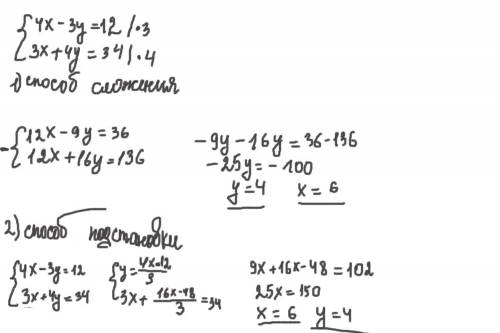 {4x-3y=12 /·3
{3x+4y=34 /·4
1) способ сложения
-{12x-9y=36
{12x+16y=136
-9y-16y=36-136
-25y=-100
y=4 x=6
2) способ подстановки
{4x-3y=12
{3x+4y=34
{y=4x-12/3
{3x+16x-48/3=34
9x+16x-48=102
25x=150
x=6 y=4